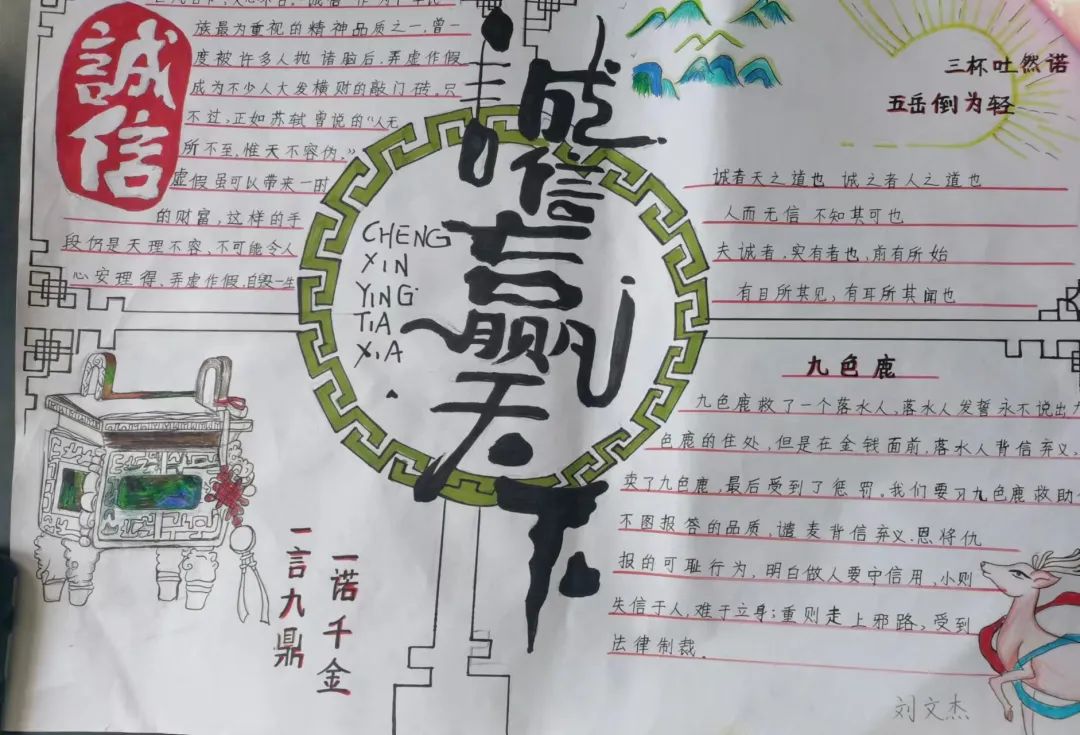 誠信
诚信 作为
族最为重视的精神品质之一,曾一
度被许多人抛诸脑后,弄虚作假
成为不少人大发横财的敲门砖,只
不过,正如苏轼曾说的“人无
所不至,惟天不容伪。”
虚假虽可以带来一时
的财富,这样的手
段仍是天理不容、不可能令人
心安理得,弄虚作假,自毁一生
诚信赢天下
CHENG
XIN
YING
TIA
XIA
三杯吐然诺
五岳倒为轻
诚者天之道也 诚之者人之道也
人而无信 不知其可也
夫诚者,实有者也,前有所始
有目所其见,有耳所其闻也
一诺千金
一言九鼎
九色鹿
九色鹿救了一个落水人,落水人发誓永不说出九
色鹿的住处,但是在金钱面前,落水人背信弃义,
卖了九色鹿,最后受到了惩罚。我们要习九色鹿救助
不图报答的品质,谴麦背信弃义.恩将仇
报的可耻行为,明白做人要守信用,小则
失信于人,难于立身;重则走上邪路,受到
法律制裁.
刘文杰